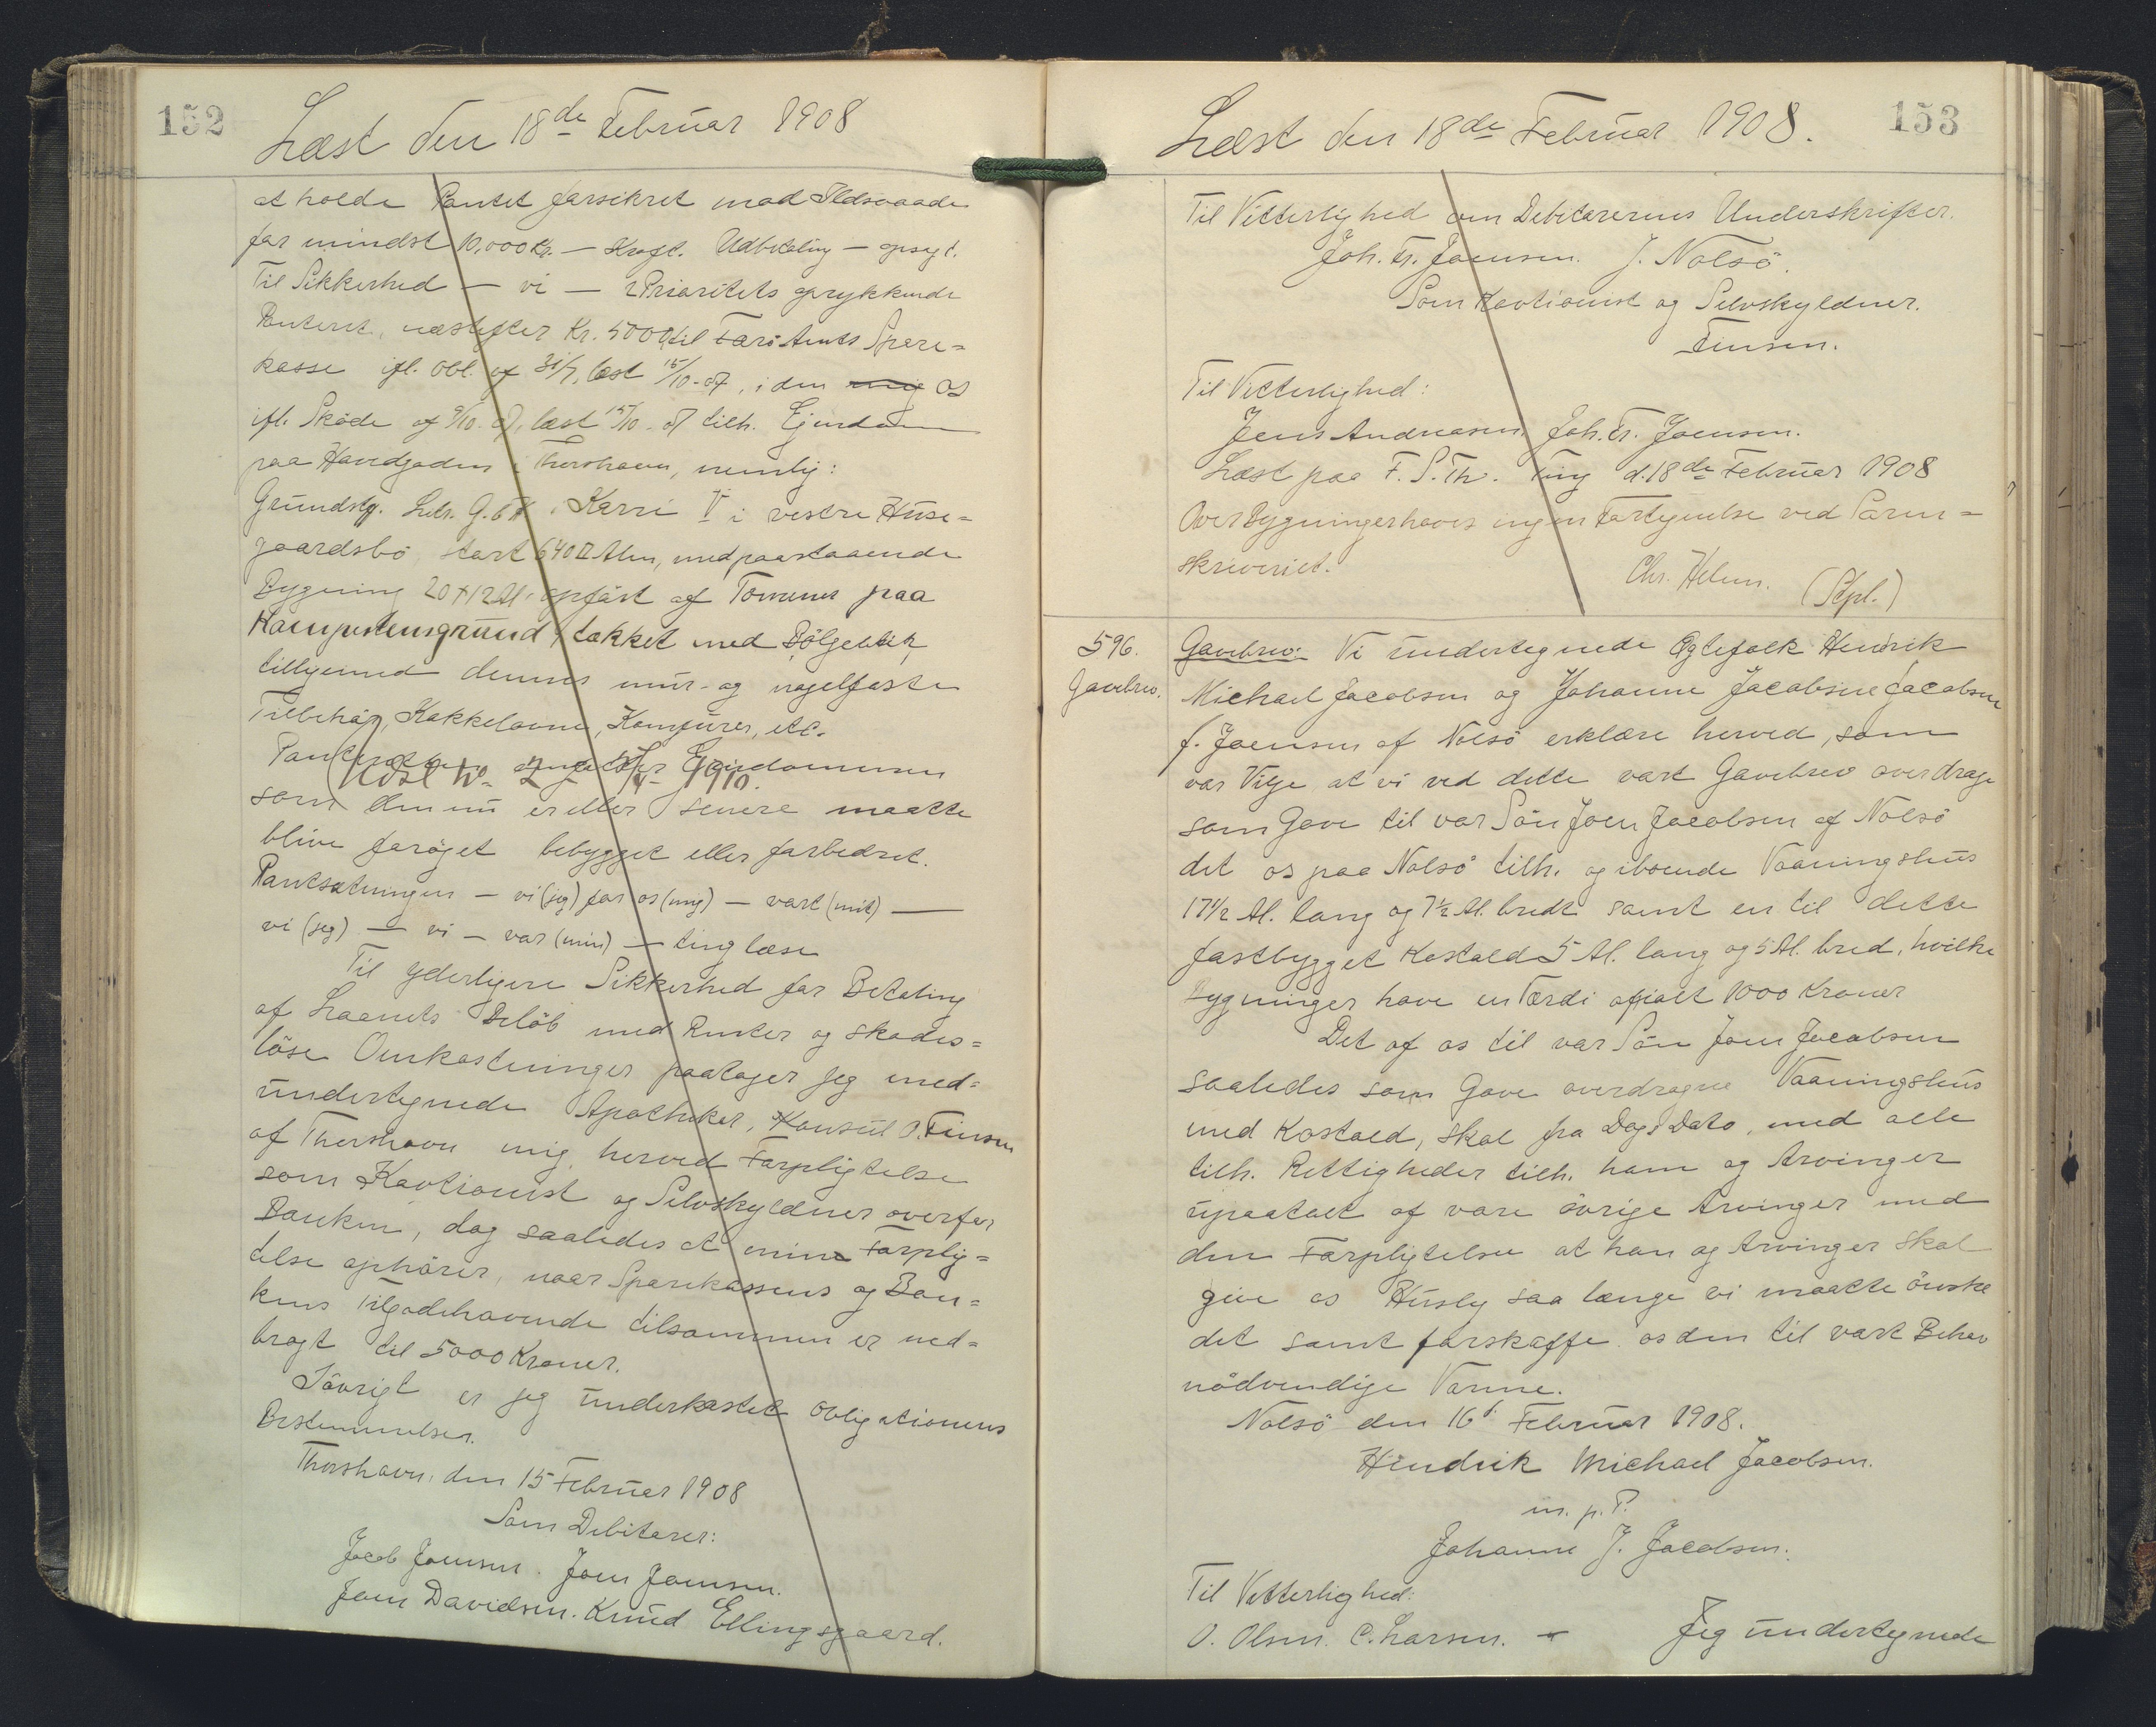 152
Læst den 18de Februar 1908
at holde Pantet forsikret mod Ildsvaade
for mindst 10,000 Kr. — Kraft. Udbetaling — opsagt.
Til Sikkerhed — vi — 2 Prioritets oprykkende
Panteret, næstefter Kr. 5000 til Færö Amts Spare=
kasse ifl. Obl. af 31/7, læst 15/10-07, i den mig os
ifl. Sköde af 9/10-07, læst 15/10-07 tilh. Ejendom
paa Havedgaden i Thorshavn, nemlig:
Grundstg. Litr. G. 6 i Karré V i vestre Huse=
gaardsbö stort 640 □ Alen, med paastaaende
Bygning 20 x 12 Al. opfört af Tömmer paa
Kampestensgrund, tækket med Bölgeblik,
tilligemed dennes mur- og nagelfaste
Tilbehör, Kakkelovne, Komfurer, etc.
Panteretten omfatter Ejendommen
Udsl. No. 2 1910.
som den nu er eller senere maatte
blive foröget bebygget eller forbedret.
Pantsætningen — vi (jeg) for os (mig) — vort (mit) —
vi (jeg) — vi — vor (min) — tinglæse
Til yderligere Sikkerhed for Betaling
af Laanets Belöb med Renter og skades=
löse Omkostninger paatager jeg med=
undertegnede Apotheker, Konsul O. Finsen
af Thorshavn mig herved Forpligtelse
som Kavtionist og Selvskyldner overfor
Banken, dog saaledes at mine Forplig=
telse ophörer, naar Sparekassens og Ban=
kens Tilgodehavende tilsammen er ned=
bragt til 5000 Kroner.
Iövrigt er jeg underkastet Obligationens
Bestemmelser.
Thorshavn, den 15 Februar 1908
Som Debitorer:
Jacob Joensen. Joen Joensen.
Joen Davidsen. Knud Ellingsgaard.
153
Læst den 18de Februar 1908.
Til Vitterlighed om Debitorernes Underskrifter.
Joh. Fr. Joensen. J. Nolsö.
Som Kavtionist og Selvskyldner.
Finsen.
Til Vitterlighed:
Jens Andreasen, Joh. Fr. Joensen.
Læst paa F. S. Th. Ting d. 18de Februar 1908
Over Bygninger haves ingen Fortegnelse ved Soren=
skriveriet.
Chr. Helms. (Stpl.)
596.
Gavebrev.
Gavebrev: Vi undertegnede Ægtefolk Hendrik
Michael Jacobsen og Johanne Jacobsine Jacobsen
f. Joensen af Nolsö erklære herved, som
vor Vilje, at vi ved dette vort Gavebrev overdrage
som Gave til vor Sön Joen Jacobsen af Nolsö
det os paa Nolsö tilh. og iboende Vaaningshus
17 1/2 Al. lang og 7 1/2 Al. bredt samt en til dette
fastbygget Kostald 5 Al. lang og 5 Al. bred, hvilke
Bygninger have en Værdi af ialt 1000 Kroner
Det af os til vor Sön Joen Jacobsen
saaledes som Gave overdragne Vaaningshus
med Kostald, skal fra Dags Dato, med alle
tilh. Rettigheder tilh. ham og Arvinger
upaatalt af vore övrige Arvinger med
den Forpligtelse at han og Arvinger skal
give os Husly saa længe vi maatte önske
det samt forskaffe os den til vort Behov
nödvendige Varme.
Nolsö den 16d Februar 1908.
Hendrik Michael Jacobsen.
m. p. P.
Johanne J. Jacobsen.
Til Vitterlighed:
O. Olsen. C. Larsen. — Jeg undertegnede